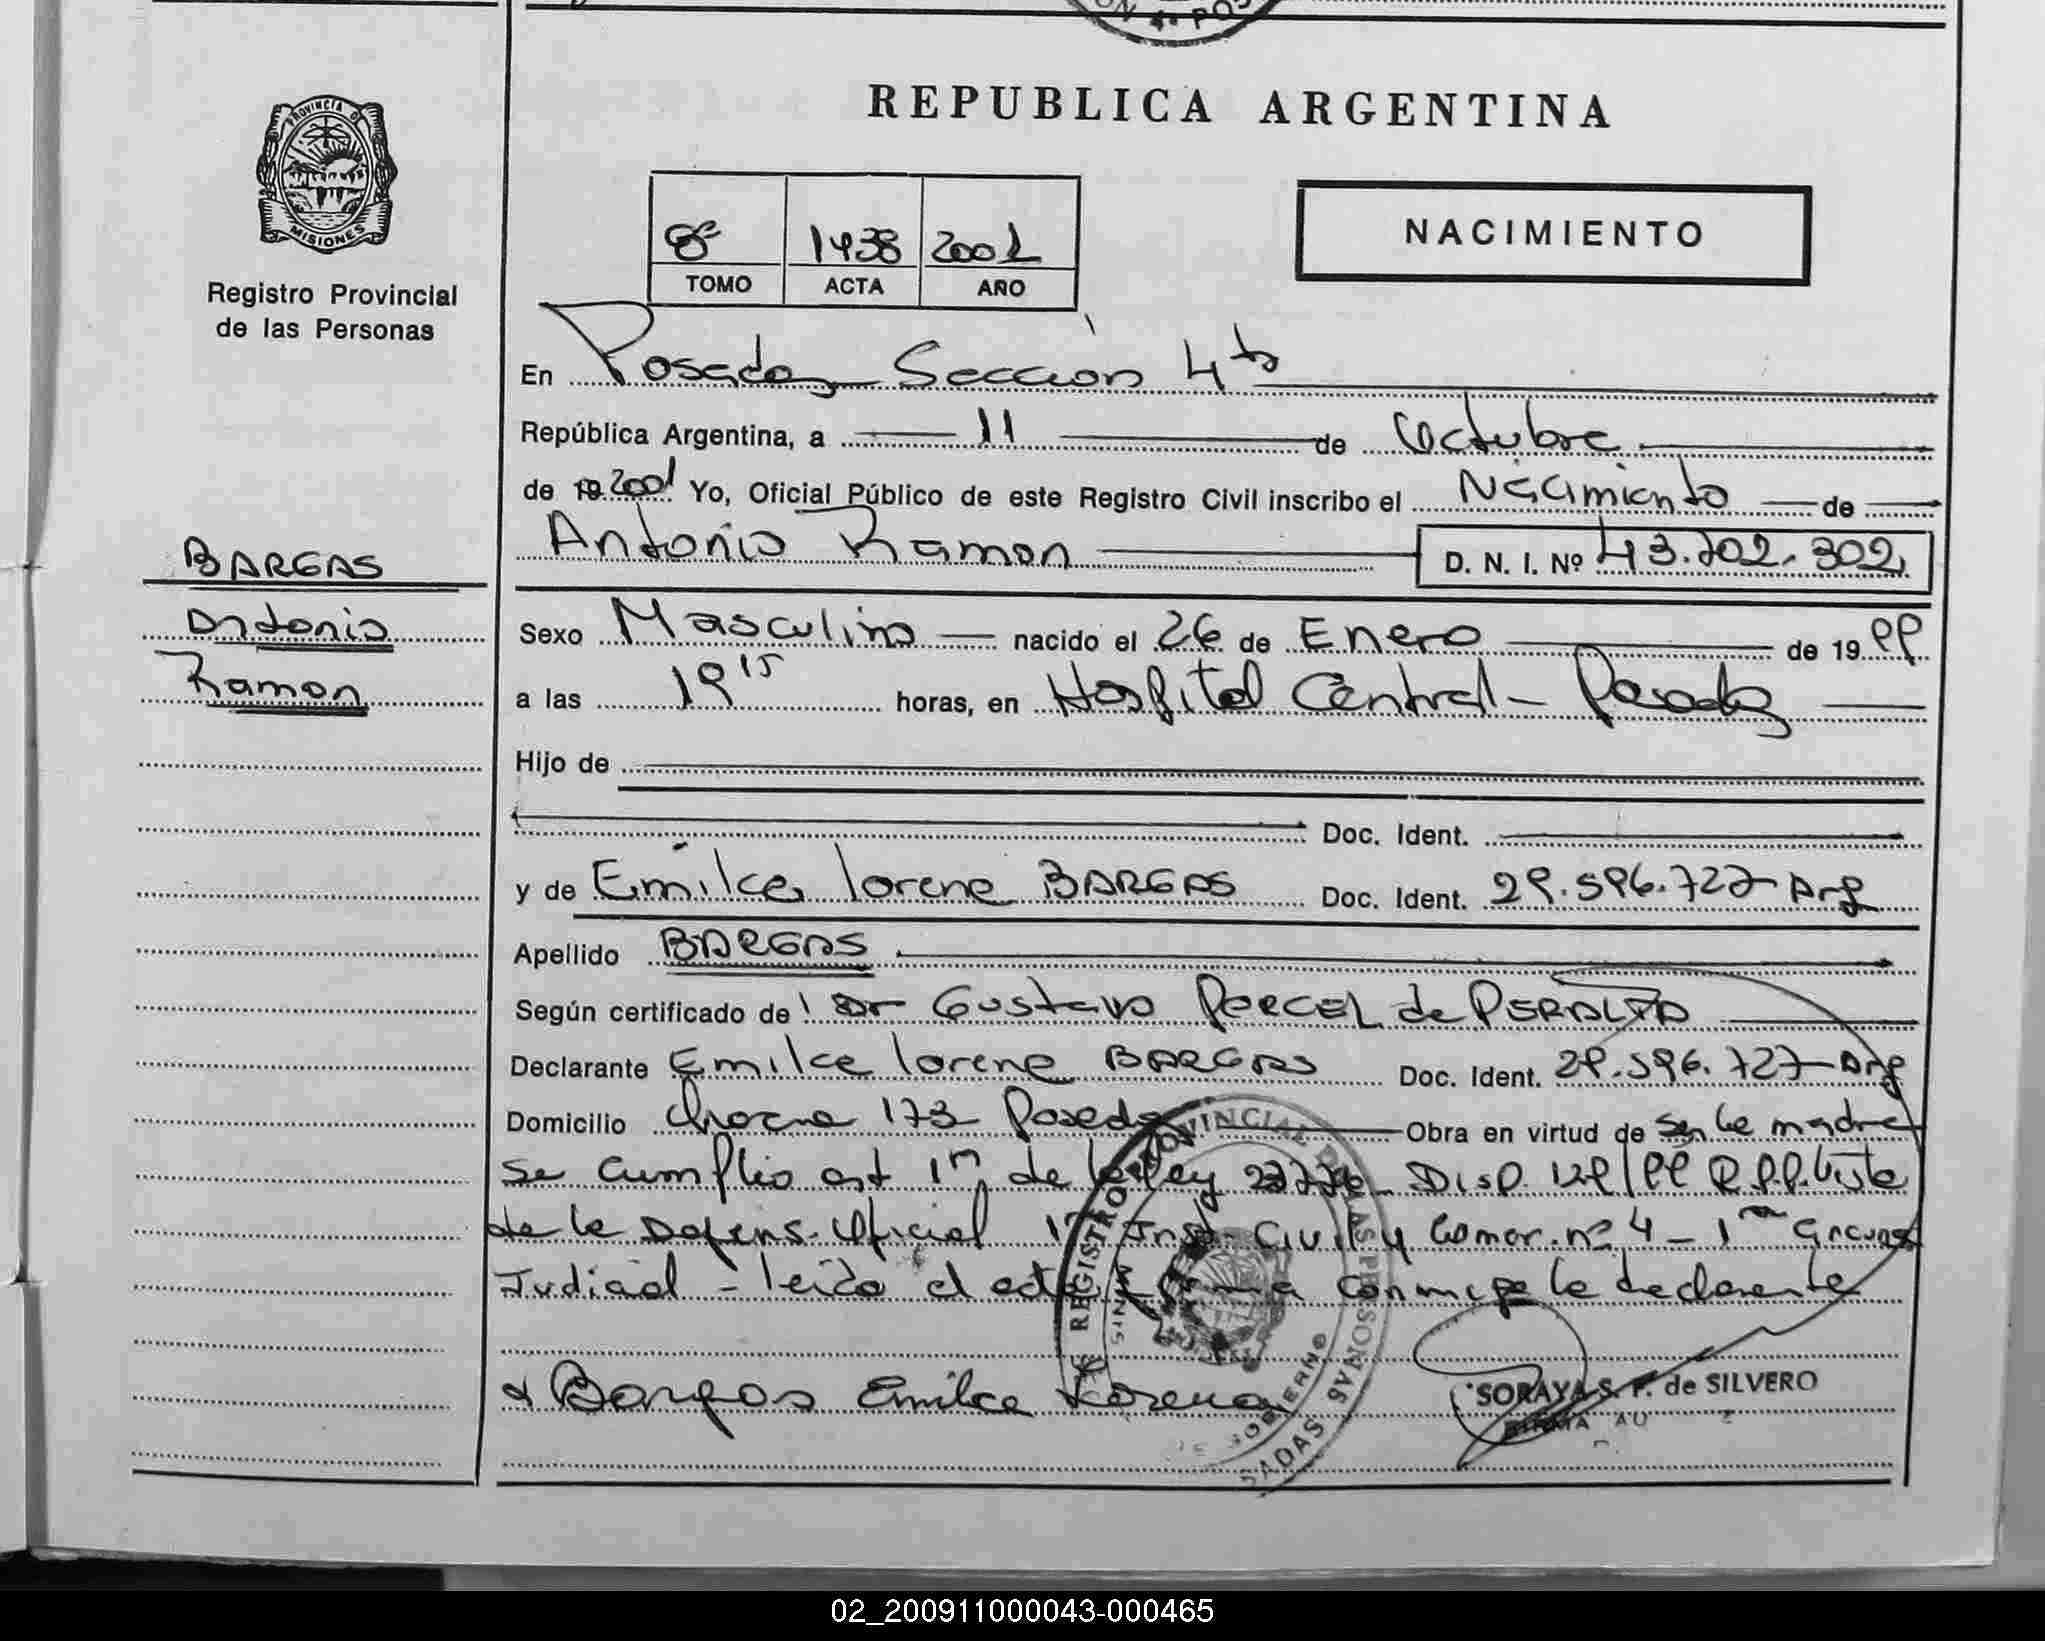 REPUBLICA ARGENTINA
PROVINCIA DE
MISIONES
Registro Provincial
de las Personas
8º 1438 2001
TOMO ACTA AÑO
NACIMIENTO
En Posadas Sección 4ta
República Argentina, a 11 de Octubre
de 19 2001 Yo, Oficial Público de este Registro Civil inscribo el Nacimiento de
Antonio Ramon D. N. I. Nº 43.702.302
BARGAS
Antonio
Ramon
Sexo Masculino nacido el 26 de Enero de 19 99
a las 19 15 horas, en Hospital Central - Posadas
Hijo de
Doc. Ident.
y de Emilce lorena BARGAS Doc. Ident. 29.596.727 Arg
Apellido BARGAS
Según certificado de Dr Gustavo PORCEL de PERALTA
Declarante Emilce lorena BARGAS Doc. Ident. 29.596.727 Arg
Domicilio 173 Posadas Obra en virtud de ser la madre
se cumplio art 1º de la ley Disp. Vista
de la Defens. Oficial 1ª Inst. Civil y Comer. nº 4 - 1ra Circuns
Judicial - leida el acta firma conmigo la declarante
Bargas Emilce Lorena
SORAYA S. F. de SILVERO
FIRMA AU
REGISTRO PROVINCIAL DE LAS PERSONAS
02_200911000043-000465